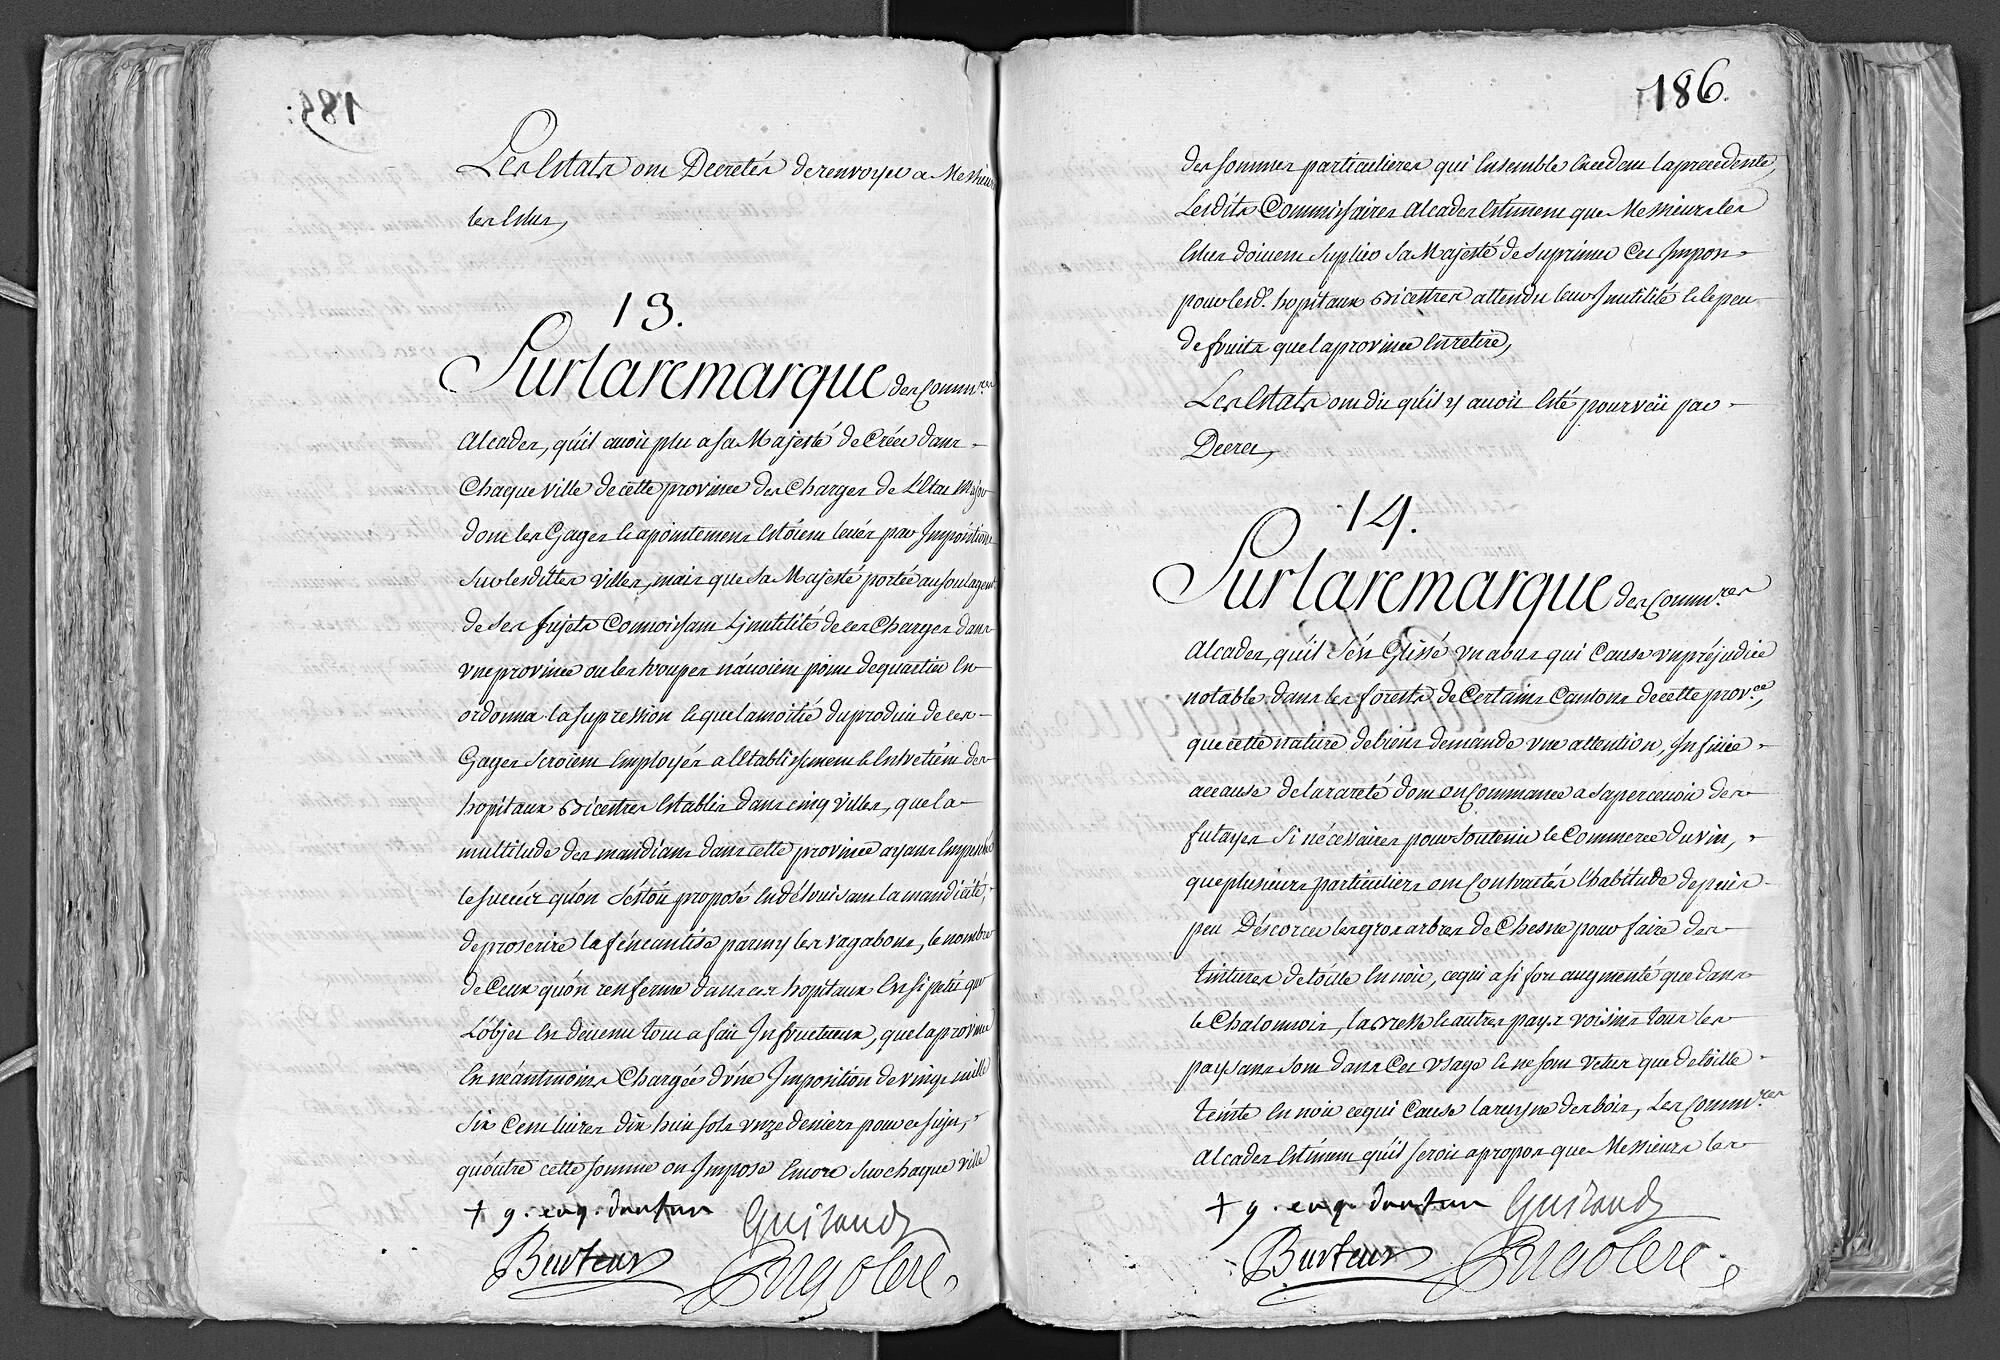 Les Estats ont Decretés de renvoyer a Messieurs
les Eslus,
13.
Sur la remarque des Comm.res
Alcades, qu'il auoit plu a sa Majesté de Créer dans
Chaque ville de cette province des Charges de L'Etat Major
dont les Gages & apointemens Estoient leués par Imposition
sur lesdittes villes, mais que sa Majesté portée au soulagem.t
de ses sujets Connoissant L'jnutilité de ces Charges dans
vne province ou les troupes n'auoient point de quartier En
ordonna la supression & que la moitié du produit de ces
Gages seroient Employés a l'Etablissement & Entretien des
hopitaux Bicestres Establis dans cinq villes, que la
multitude des mandians dans cette province ayans Empesché
le succés qu'on s'estoit proposé En détruisant la mandicité,
de proscrire la féneantise parmy les vagabons, le nombre
de Ceux qu'on renferme dans ces hopitaux Est si petit que
L'objet Est devenu tout a fait Infructueux, que la province
Est néantmoins Chargée d'vne Imposition de vingt mille
six Cent liures dix huit sols vnze deniers pour ce sujet,
qu'outre cette somme on Impose Encore sur chaque ville
+ g. evq. d'autun Guiraud
Burteur Ergolere
186.
des sommes particulieres qui Ensemble Excedent la precedente,
Lesdits Commissaires Alcades Estiment que Messieurs les
Eslus doiuent suplier sa Majesté de suprimer Cet Impon
pour lesd. hopitaux Bicestres attendu leur Jnutilité & le peu
de fruits que la province En retire,
Les Estats ont dit qu'il y auoit Esté pourveü par
Decret,
14.
Sur la remarque des Comm.res
Alcades, qu'il s'est Glissé vn abus qui Cause vn préjudice
notable dans les forests de Certains Cantons de cette prov.ce,
que cette nature de biens demande vne attention, Infinie
accause de la rareté dont on Commance a s'apercevoir des
futayes si nécessaires pour soutenir le Commerce du vin,
que plusieurs particuliers ont Contractés l'habitude depuis
peu D'écorcer les gros arbres de Chesne pour faire des
tintures de toille En noir, ce qui a si fort augmenté que dans
le Chalonnois, la Bresse & autres pays voisins tous les
paysans sont dans Cet vsage & ne sont vetus que de toille
teinte En noir ce qui Cause la ruyne des bois, Les Comm.res
Alcades Estiment qu'il seroit apropos que Messieurs les
+ g. evq. d'autun Guiraud
Burteur Ergolere